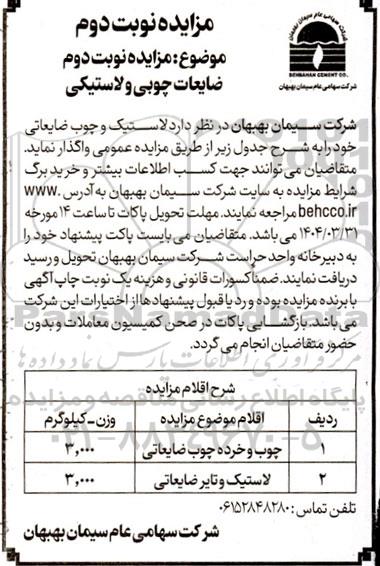 مزایده نوبت دوم
موضوع: مزایده نوبت دوم
ضایعات چوبی و لاستیکی
شرکت سهامی عام سیمان بهبهان
BEHBAHAN CEMENT CO.
شرکت سهامی عام سیمان بهبهان
شرکت سیمان بهبهان در نظر دارد لاستیک و چوب ضایعاتی
خود را به شرح جدول زیر از طریق مزایده عمومی واگذار نماید.
متقاضیان می توانند جهت کسب اطلاعات بیشتر و خرید برگ
شرایط مزایده به سایت شرکت سیمان بهبهان به آدرس www.
behcco.ir مراجعه نمایند. مهلت تحویل پاکات تا ساعت ۱۴ مورخه
۱۴۰۴/۰۳/۳۱ می باشد. متقاضیان می بایست پاکت پیشنهاد خود را
به دبیرخانه واحد حراست شرکت سیمان بهبهان تحویل و رسید
دریافت نمایند. ضمناً کسورات قانونی و هزینه یک نوبت چاپ آگهی
با برنده مزایده بوده و رد یا قبول پیشنهادها از اختیارات این شرکت
می باشد. بازگشایی پاکات در صحن کمیسیون معاملات و بدون
حضور متقاضیان انجام می گردد.
شرح اقلام مزایده
ردیف اقلام موضوع مزایده وزن-کیلوگرم
۱ چوب و خرده چوب ضایعاتی ۳,۰۰۰
۲ لاستیک و تایر ضایعاتی ۳,۰۰۰
تلفن تماس: ۰۶۱۵۲۸۴۸۲۸۰
شرکت سهامی عام سیمان بهبهان
ParsNamadData
مرکز آوری اطلاعات پارس نماد داده ها
پایگاه اطلاع رسانی مناقصه و مزایده
۰۲۱-۸۸۳۴۹۶۷۰-۵